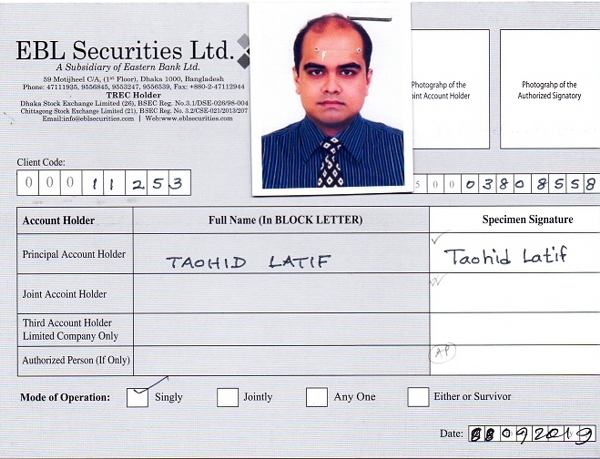 EBL Securities Ltd.
A Subsidiary of Eastern Bank Ltd.
59 Motijheel C/A, (1st Floor), Dhaka 1000, Bangladesh
Phone: 47111935, 9556845, 9553247, 9556539, Fax: +880-2-47112944
TREC Holder
Dhaka Stock Exchange Limited (26), BSEC Reg. No.3.1/DSE-026/98-004
Chittagong Stock Exchange Limited (21), BSEC Reg. No. 3.2/CSE-021/2013/207
Email:info@eblsecurities.com | Web:www.eblsecurities.com
Photograhp of the
int Account Holder
Photograhp of the
Authorized Signatory
Client Code:
0 0 0 1 1 2 5 3
5 0 0 0 3 8 0 8 5 5 8
Account Holder Full Name (In BLOCK LETTER) Specimen Signature
Principal Account Holder TAOHID LATIF Taohid Latif
Joint Accoint Holder
Third Account Holder
Limited Company Only
Authorized Person (If Only) AP
Mode of Operation: Singly Jointly Any One Either or Survivor
Date: 092019